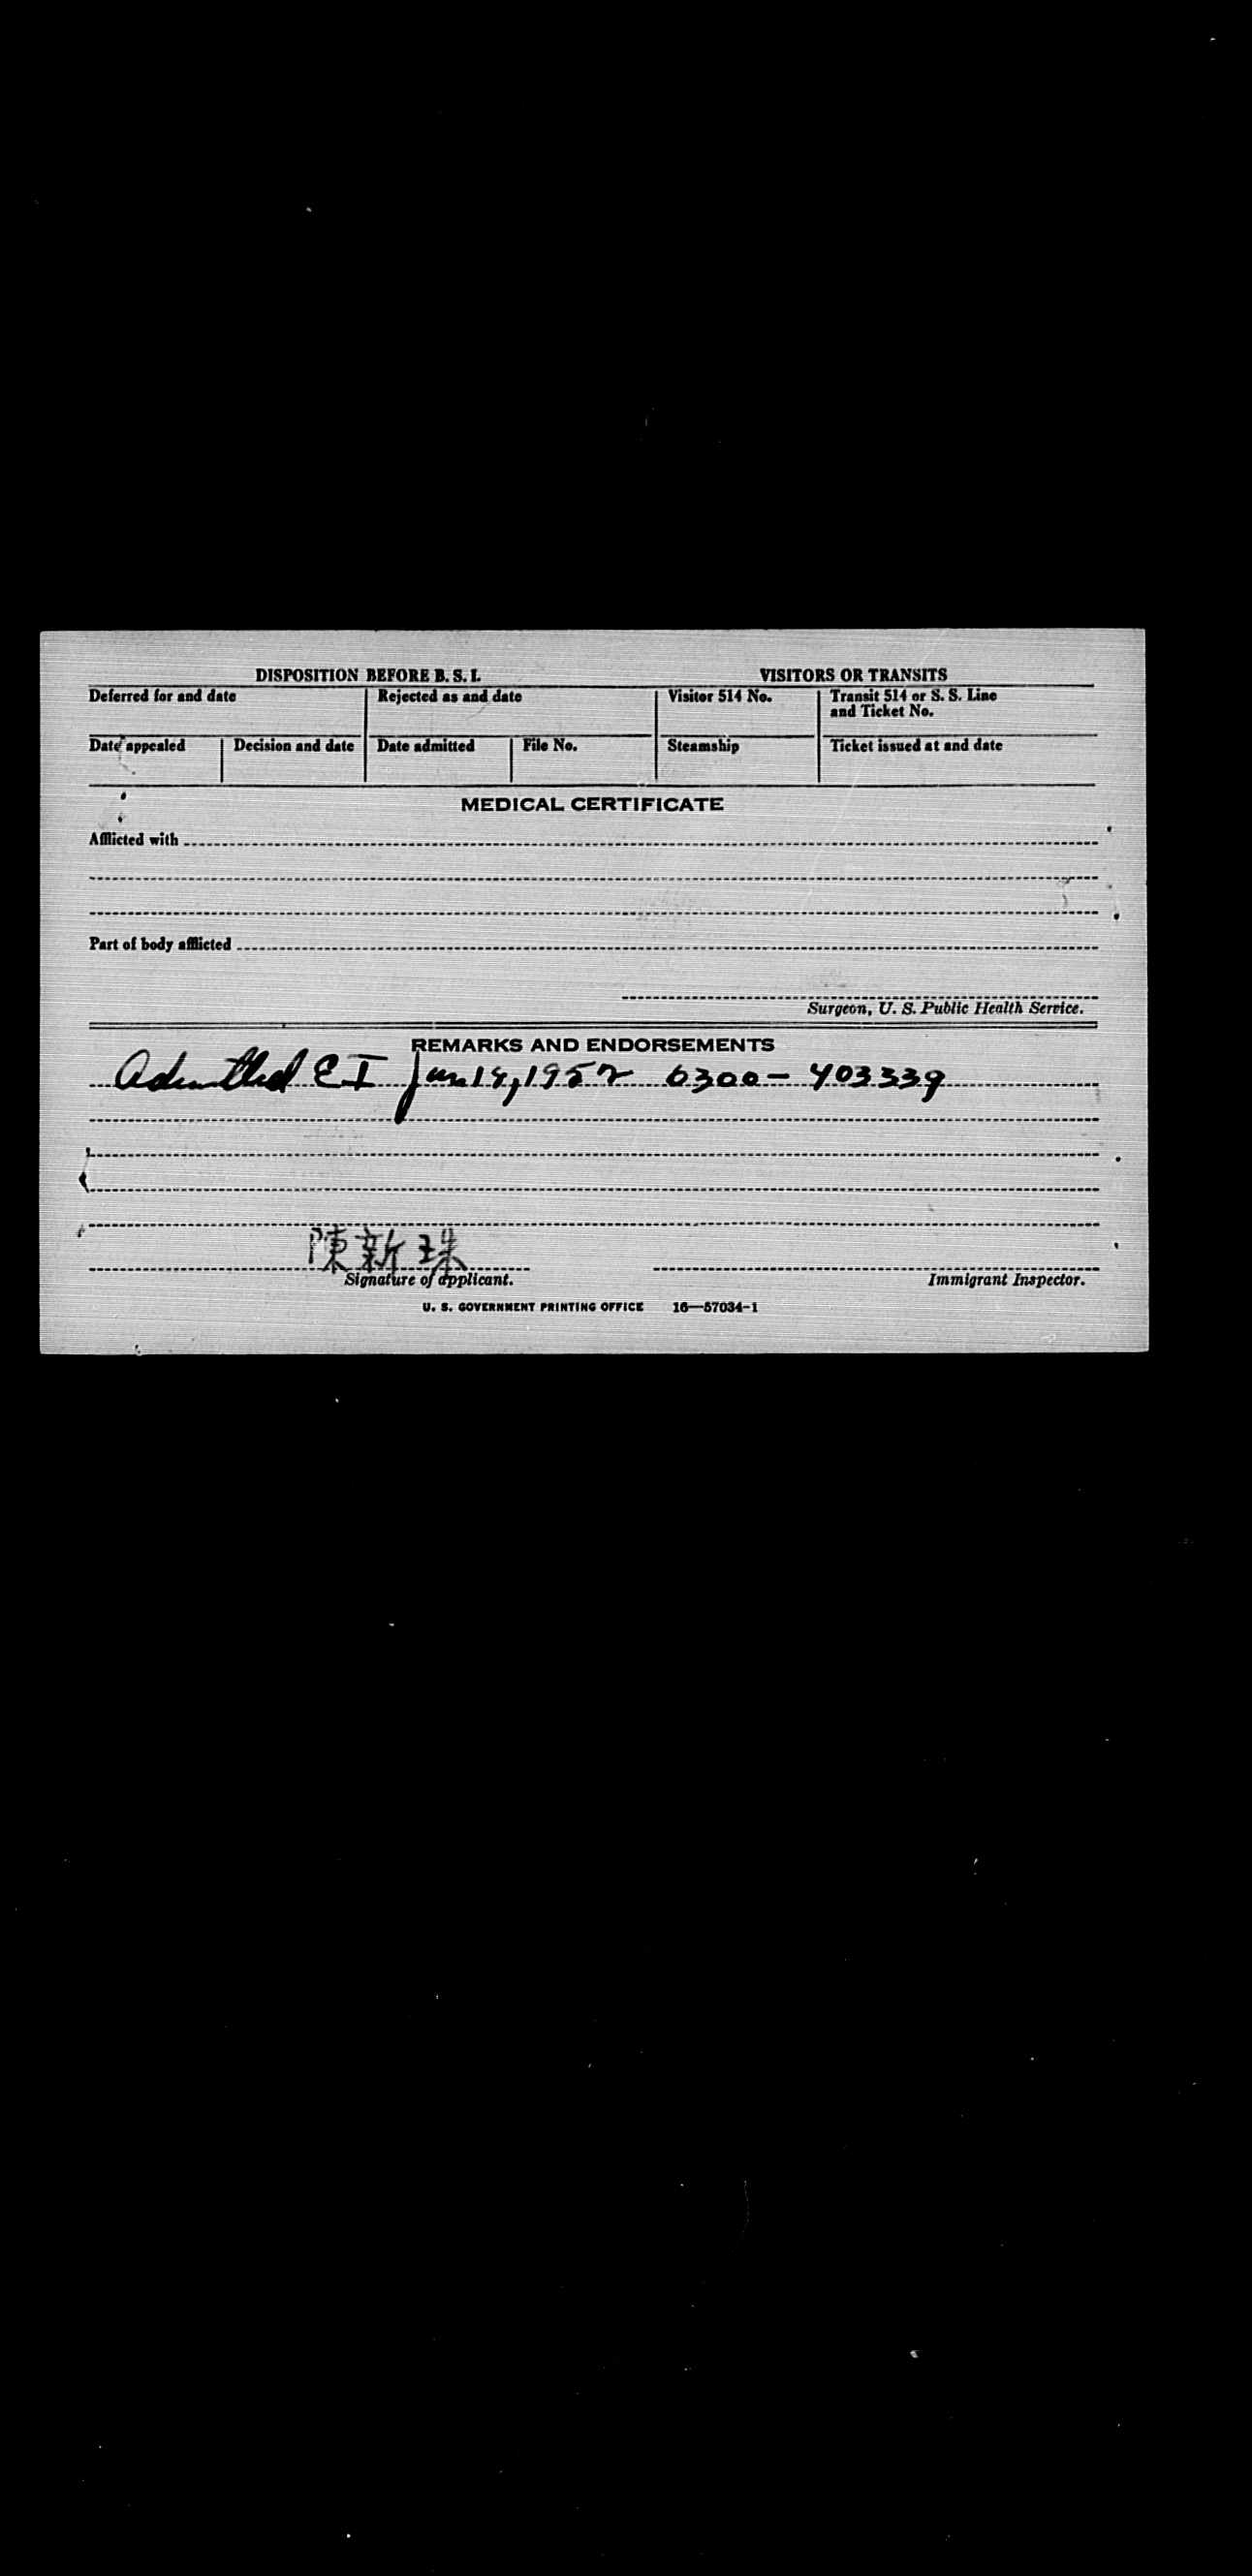 DISPOSITION BEFORE B. S. I. VISITORS OR TRANSITS
Deferred for and date Rejected as and date Visitor 514 No. Transit 514 or S. S. Line
and Ticket No.
Date appealed Decision and date Date admitted File No. Steamship Ticket issued at and date
MEDICAL CERTIFICATE
Afflicted with
Part of body afflicted
Surgeon, U. S. Public Health Service.
REMARKS AND ENDORSEMENTS
Admitted E I 1952 0300-403339
陳新珠
Signature of applicant. Immigrant Inspector.
U. S. GOVERNMENT PRINTING OFFICE 16—57034-1